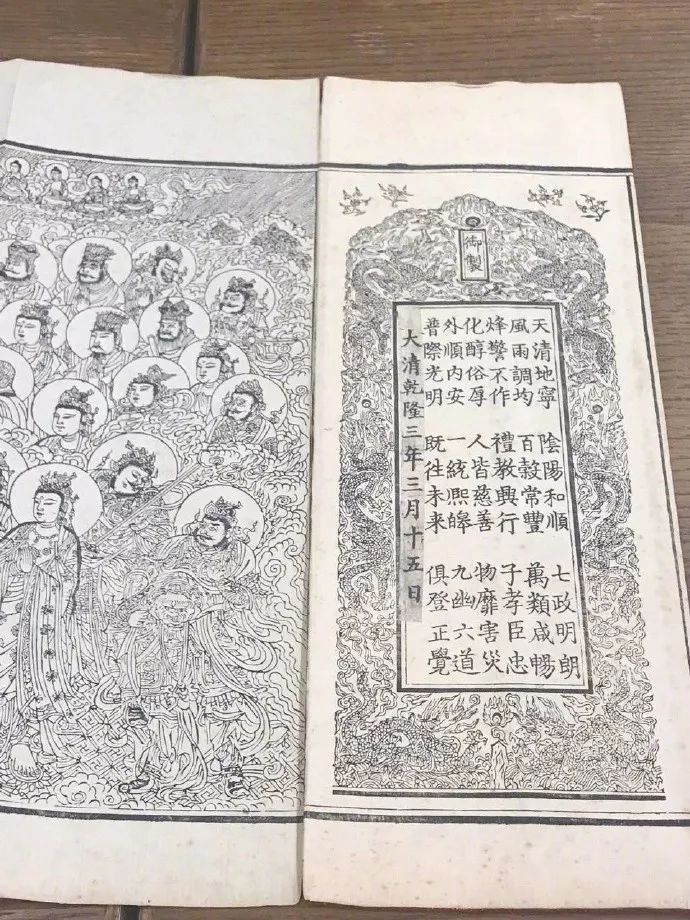 御製
天清地寧 陰陽和順 七政明朗
風雨調均 百穀常豐 萬類咸暢
烽警不作 禮教興行 子孝臣忠
化醇俗厚 人皆慈善 物靡害災
外順内安 一統熙皞 九幽六道
普際光明 既往未来 俱登正覺
大清乾隆三年三月十五日